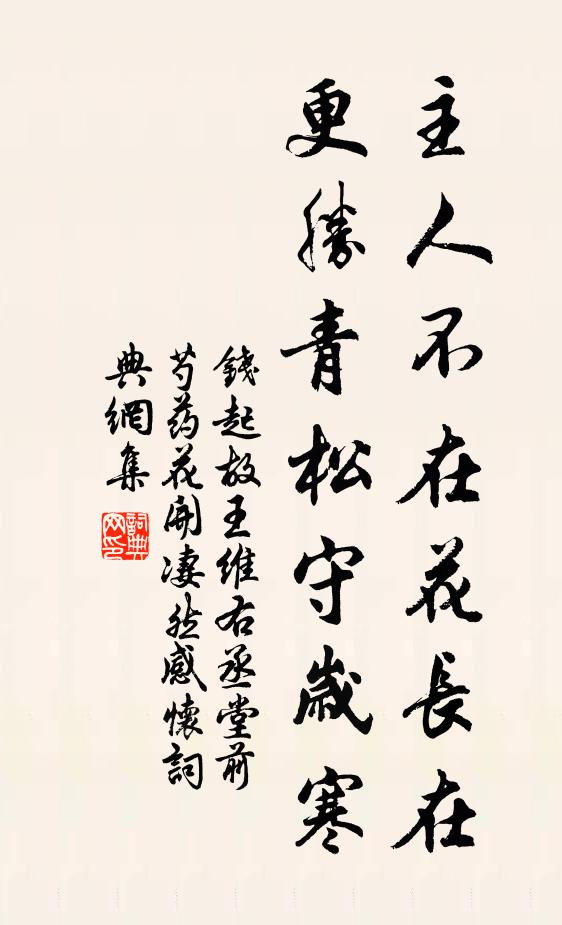 主人不在花長在
更勝青松守歲寒
錢起故王維右丞堂前
芍药花開凄然感懷詞
典網集
詞典
网印